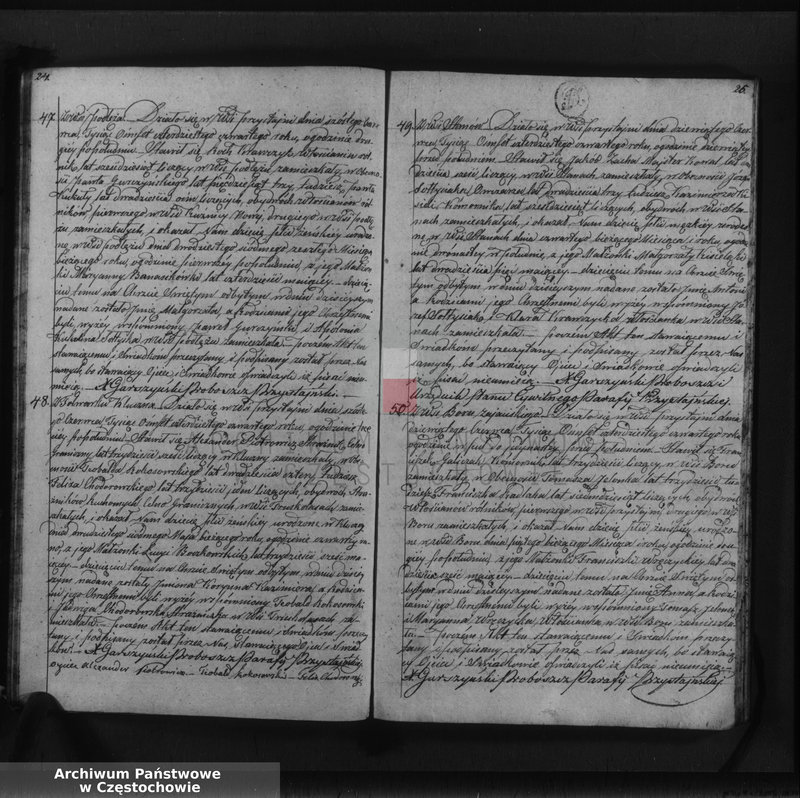 24.
47. Działo się w Wsi Przystajni dnia szóstego Czer
wca Tysiąc Ośmset czterdziestego czwartego roku, o godzinie dru
giey popołudniu. Stawił się
lat sześćdziesiąt liczący w Wsi Podłężu zamieszkały, w Obecno
ści Pawła Gurszyńskiego lat pięćdziesiąt trzy, tudzież Pawła
Kukuły lat dwadzieścia ośm liczących, obydwóch Włościanów rol
ników pierwszego w Wsi Kuźnicy Nowy, drugiego w Wsi Podłę
żu zamieszkałych, i okazał Nam dziecię płci żeńskiey urodzo
ne w Wsi Podłężu dnia dwudziestego siódmego zeszłego Miesiąca
bieżącego roku, o godzinie pierwszey popołudniu, z jego Małżon
ki Maryanny Banasikówki lat czterdzieści maiącey. dziecię
ciu temu na Chrzcie Świętym odbytym w dniu dzisieyszym
nadane zostało Imię Małgorzata, a rodzicami jego Chrzestnemi
byli wyżey wspomniony Paweł Gurszyński i Apolonia
w Wsi Podłężu zamieszkała. poczem Akt ten
stawaiącemu i Świadkom przeczytany i podpisany został przez Nas
samych, bo stawaiący Oyciec i Świadkowie oświadczyli iż pisać nieu
mieią. X Garszyński Proboszcz Przystajński.
48. Działo się w Wsi Przystajni dnia szóste
go Czerwca Tysiąc Ośmset czterdziestego czwartego roku, o godzinie trze
ciey popołudniu. Stawił się Alexander Piotrowicz Strażnik Celno
Graniczny, lat trzydzieści sześć liczący w Kluczny zamieszkały, w Obe
cności Teobalda Kokosowskiego lat dwadzieścia cztery, tudzież
Felixa Chodorowskiego lat trzydzieści jeden liczących, obydwóch Stra
żników Ruchomych Celno Granicznych w Wsi Truskolasach zamie
szkałych, i okazał Nam dziecię płci żeńskiey urodzone w
dnia dwudziestego siódmego Maja bieżącego roku, o godzinie czwartey
z jego Małżonki Lucyi Borkowskich, lat trzydzieści sześć ma
iącey. dziecięciu temu na Chrzcie Świętym odbytym w dniu dzisiey
szym nadane zostały Imiona Kazimiera, a Rodzica
mi jego Chrzestnemi byli wyżey wspomniony Teobald Kokosowski
i Jadwiga Chodorowska Strażniczka w Wsi Truskolasach za
mieszkali. poczem Akt ten stawaiącemu i Świadkom przeczy
tany i podpisany został przez Nas, Stawaiącego Oyca i Świad
ków. X Garszyński Proboszcz Parafij Przystajński
oyciec alexander Piotrowicz Teobald Kokosowski Felix Chodorowski
25.
49. Działo się w Wsi Przystajni dnia dziewiątego Czer
wca Tysiąc Ośmset czterdziestego czwartego roku, o godzinie dziewiątey
przed południem. Stawił się Jakób Zaiba Majster Kowal, lat dwa
dzieścia sześć liczący w Wsi Stanach zamieszkały, w Obecności Józefa
Sołtysiaka Owczarza, lat dwadzieścia trzy, tudzież Kazimierza
Komornika, lat sześćdziesiąt liczących, obydwóch w Wsi Sta
nach zamieszkałych, i okazał Nam dziecię płci męzkiey urodzo
ne w Wsi Stanach dnia czwartego bieżącego Miesiąca i roku, o godzi
nie dwunastey w południe, z jego Małżonki Małgorzaty
lat dwadzieścia pięć maiącey. dziecięciu temu na Chrzcie Świę
tym odbytym w dniu dzisieyszym nadane zostało Imię Antoni
a Rodzicami jego Chrzestnemi byli wyżey wspomniony Jó
zef Sołtysiak i Klara Krawczyka włościanka w Wsi Sta
nach zamieszkała. poczem Akt ten stawaiącemu i
Świadkom przeczytany i podpisany został przez Nas
samych, bo stawaiący Oyciec i Świadkowie oświadczyli
iż pisać nieumieią. X Garszyński Proboszcz i
Urzędnik Stanu Cywilnego Parafij Przystajńskiej.
50. Wieś Bory zajacińskie. Działo się w Wsi Przystajni dnia
dziewiątego Czerwca Tysiąc Ośmset czterdziestego czwartego roku
przed południem. Stawił się Fran
ciszek Komornik lat trzydzieści liczący, w Wsi Borze
zamieszkały, w Obecności Tomasza Jelonka lat trzydzieści tu
dzież Franciszka Kaczlaka lat siedmdziesiąt liczących, obydwóch
Włościanów rolników, pierwszego w Wsi Przystajni, drugiego w Wsi
Boru zamieszkałych i okazał Nam dziecię płci żeńskiey urodzo
ne w Wsi Boru dnia piątego bieżącego Miesiąca i roku, o godzinie dru
giey popołudniu, z jego Małżonki Franciszki Wręczyckiey lat dwa
dzieścia sześć maiącey. dziecięciu temu na Chrzcie Świętym od
bytym w dniu dzisieyszym nadane zostało Imię Anna, a Rodzi
cami jego Chrzestnemi byli wyżey wspomniony Tomasz Jelonek
i Maryanna Wręczycka, Włościanka w Wsi Boru zamieszka
ła. poczem Akt ten stawaiącemu i Świadkom przeczy
tany i podpisany został przez Nas samych, bo stawaią
cy Oyciec i Świadkowie oświadczyli iż pisać nieumieią.
X Garszyński Proboszcz Parafij Przystajńskiej
Archiwum Państwowe
w Częstochowie